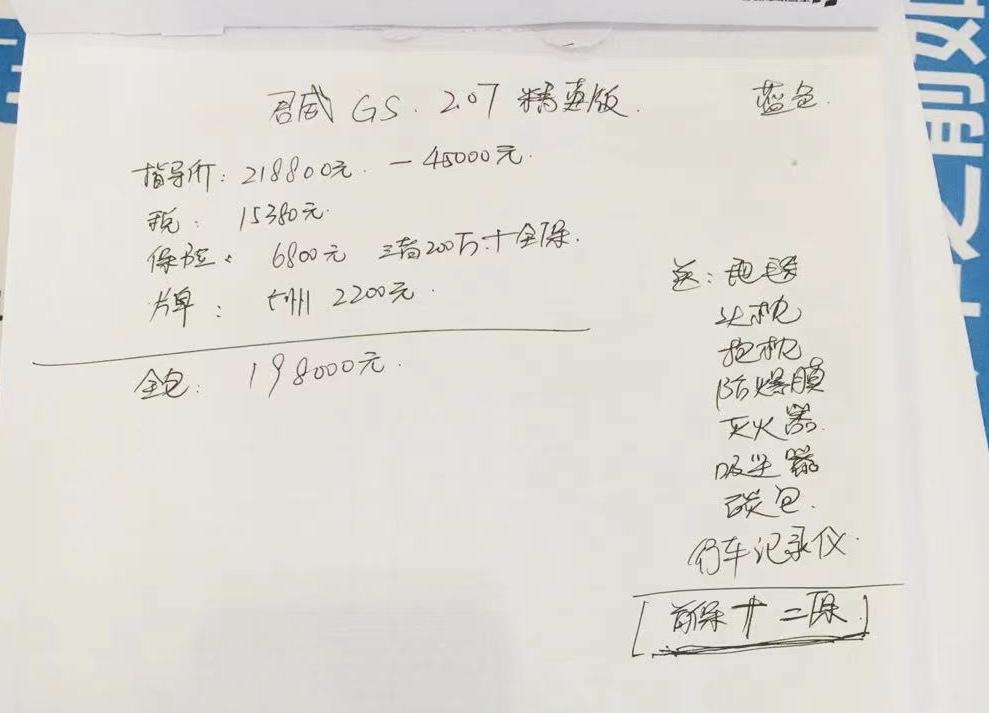 君威 GS. 20T 精英版. 蓝色.
指导价: 218800元. — 45000元.
税: 15380元.
保险: 6800元 三者200万.+全保.
广州 2200元.
全包: 198000元.
送: 地毯
头枕
抱枕
防爆膜
灭火器.
吸尘器
碳包.
行车记录仪.
[首保 + 二保.]